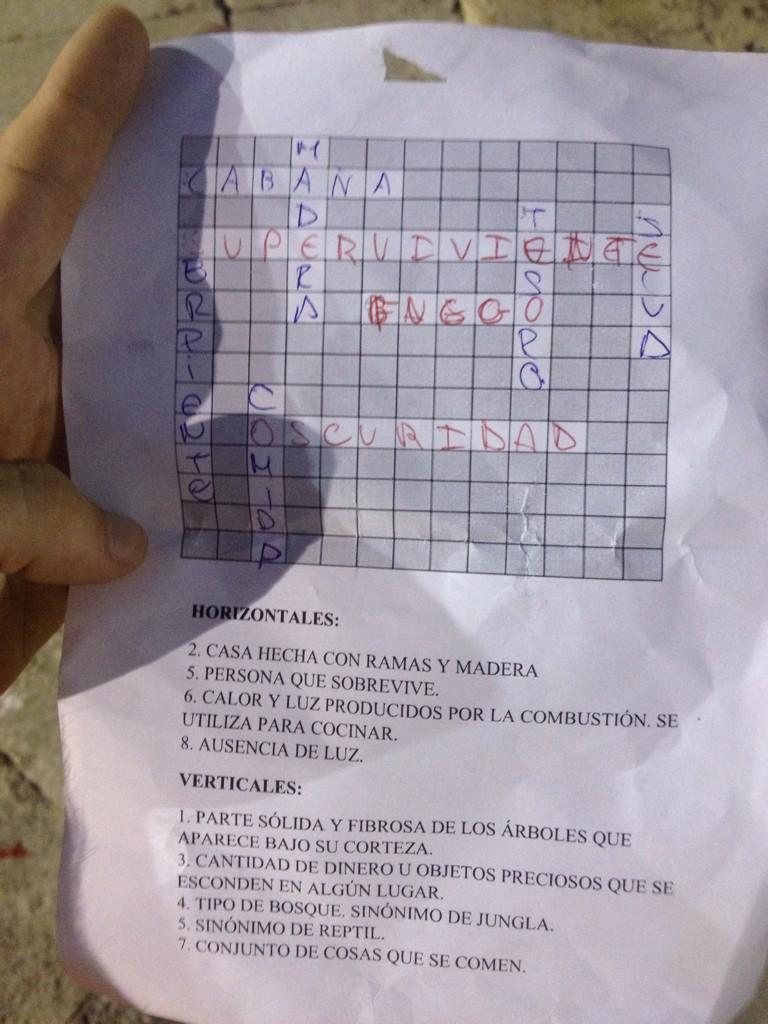 M
CABAÑA
D T S
SUPERVIVIENTE
E R S L
R A ENGO O V
P P A
I O
E C
N OSCURIDAD
T M
E I
D
A
HORIZONTALES:
2. CASA HECHA CON RAMAS Y MADERA
5. PERSONA QUE SOBREVIVE.
6. CALOR Y LUZ PRODUCIDOS POR LA COMBUSTIÓN. SE
UTILIZA PARA COCINAR.
8. AUSENCIA DE LUZ.
VERTICALES:
1. PARTE SÓLIDA Y FIBROSA DE LOS ÁRBOLES QUE
APARECE BAJO SU CORTEZA.
3. CANTIDAD DE DINERO U OBJETOS PRECIOSOS QUE SE
ESCONDEN EN ALGÚN LUGAR.
4. TIPO DE BOSQUE. SINÓNIMO DE JUNGLA.
5. SINÓNIMO DE REPTIL.
7. CONJUNTO DE COSAS QUE SE COMEN.